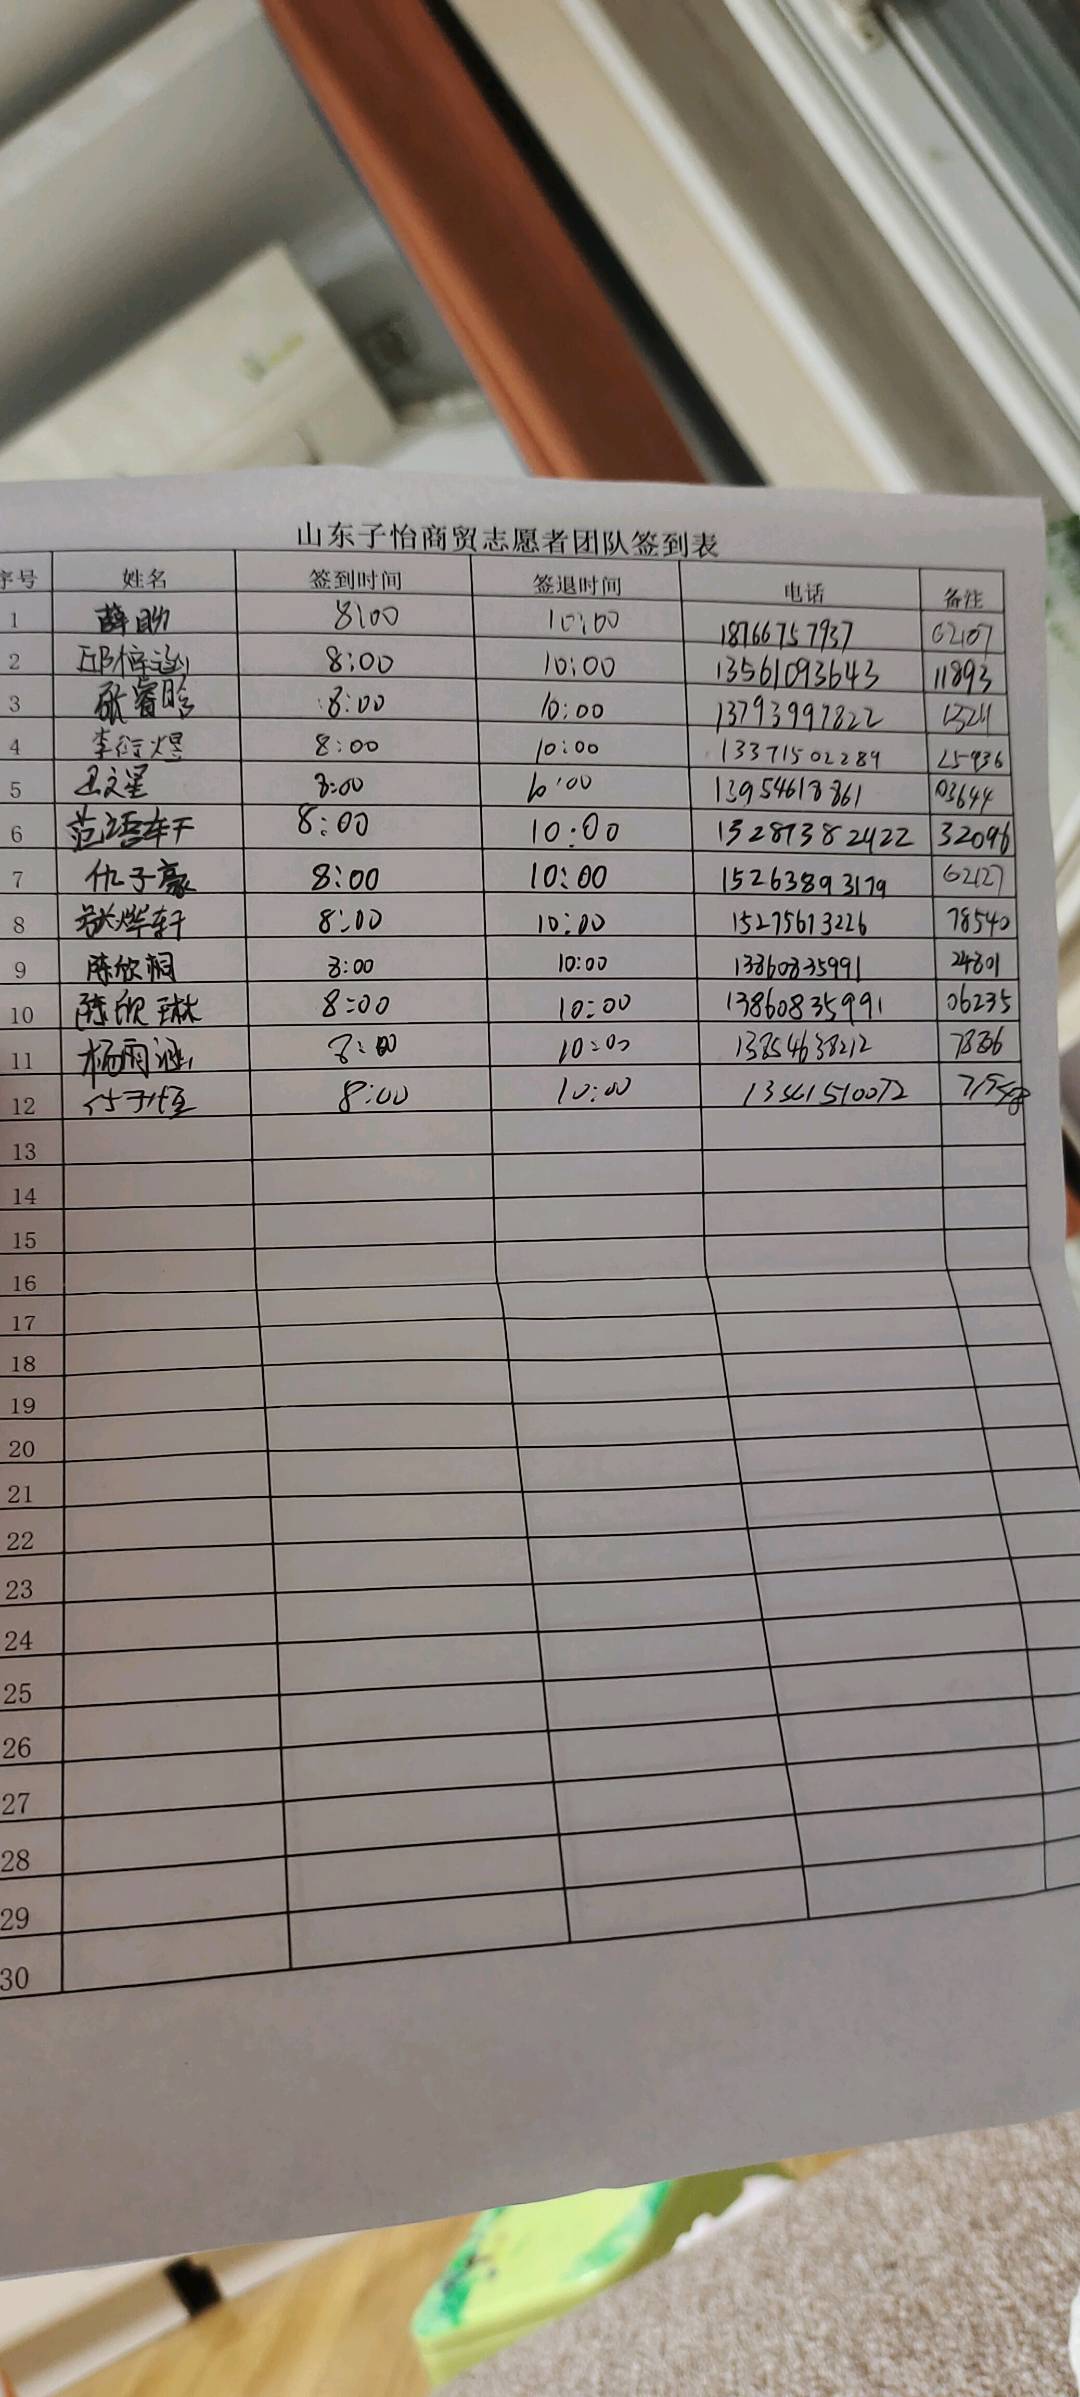 山东子怡商贸志愿者团队签到表
序号 姓名 签到时间 签退时间 电话 备注
1 8:00 10:00 18766757937 62107
2 8:00 10:00 13561093643 11893
3 张睿晗 8:00 10:00 13793997822 1324
4 李衍煜 8:00 10:00 13371502289
5 文星 8:00 10:00 13954618861 03644
6 范语轩 8:00 10:00 32096
7 仇子豪 8:00 10:00 15263893179 62127
8 烨轩 8:00 10:00 15275613226 78540
9 陈欣桐 8:00 10:00 13860835991 24801
10 陈欣琳 8:00 10:00 13860835991 06235
11 杨雨涵 8:00 10:00 13854638212
12 8:00 10:00
13
14
15
16
17
18
19
20
21
22
23
24
25
26
27
28
29
30